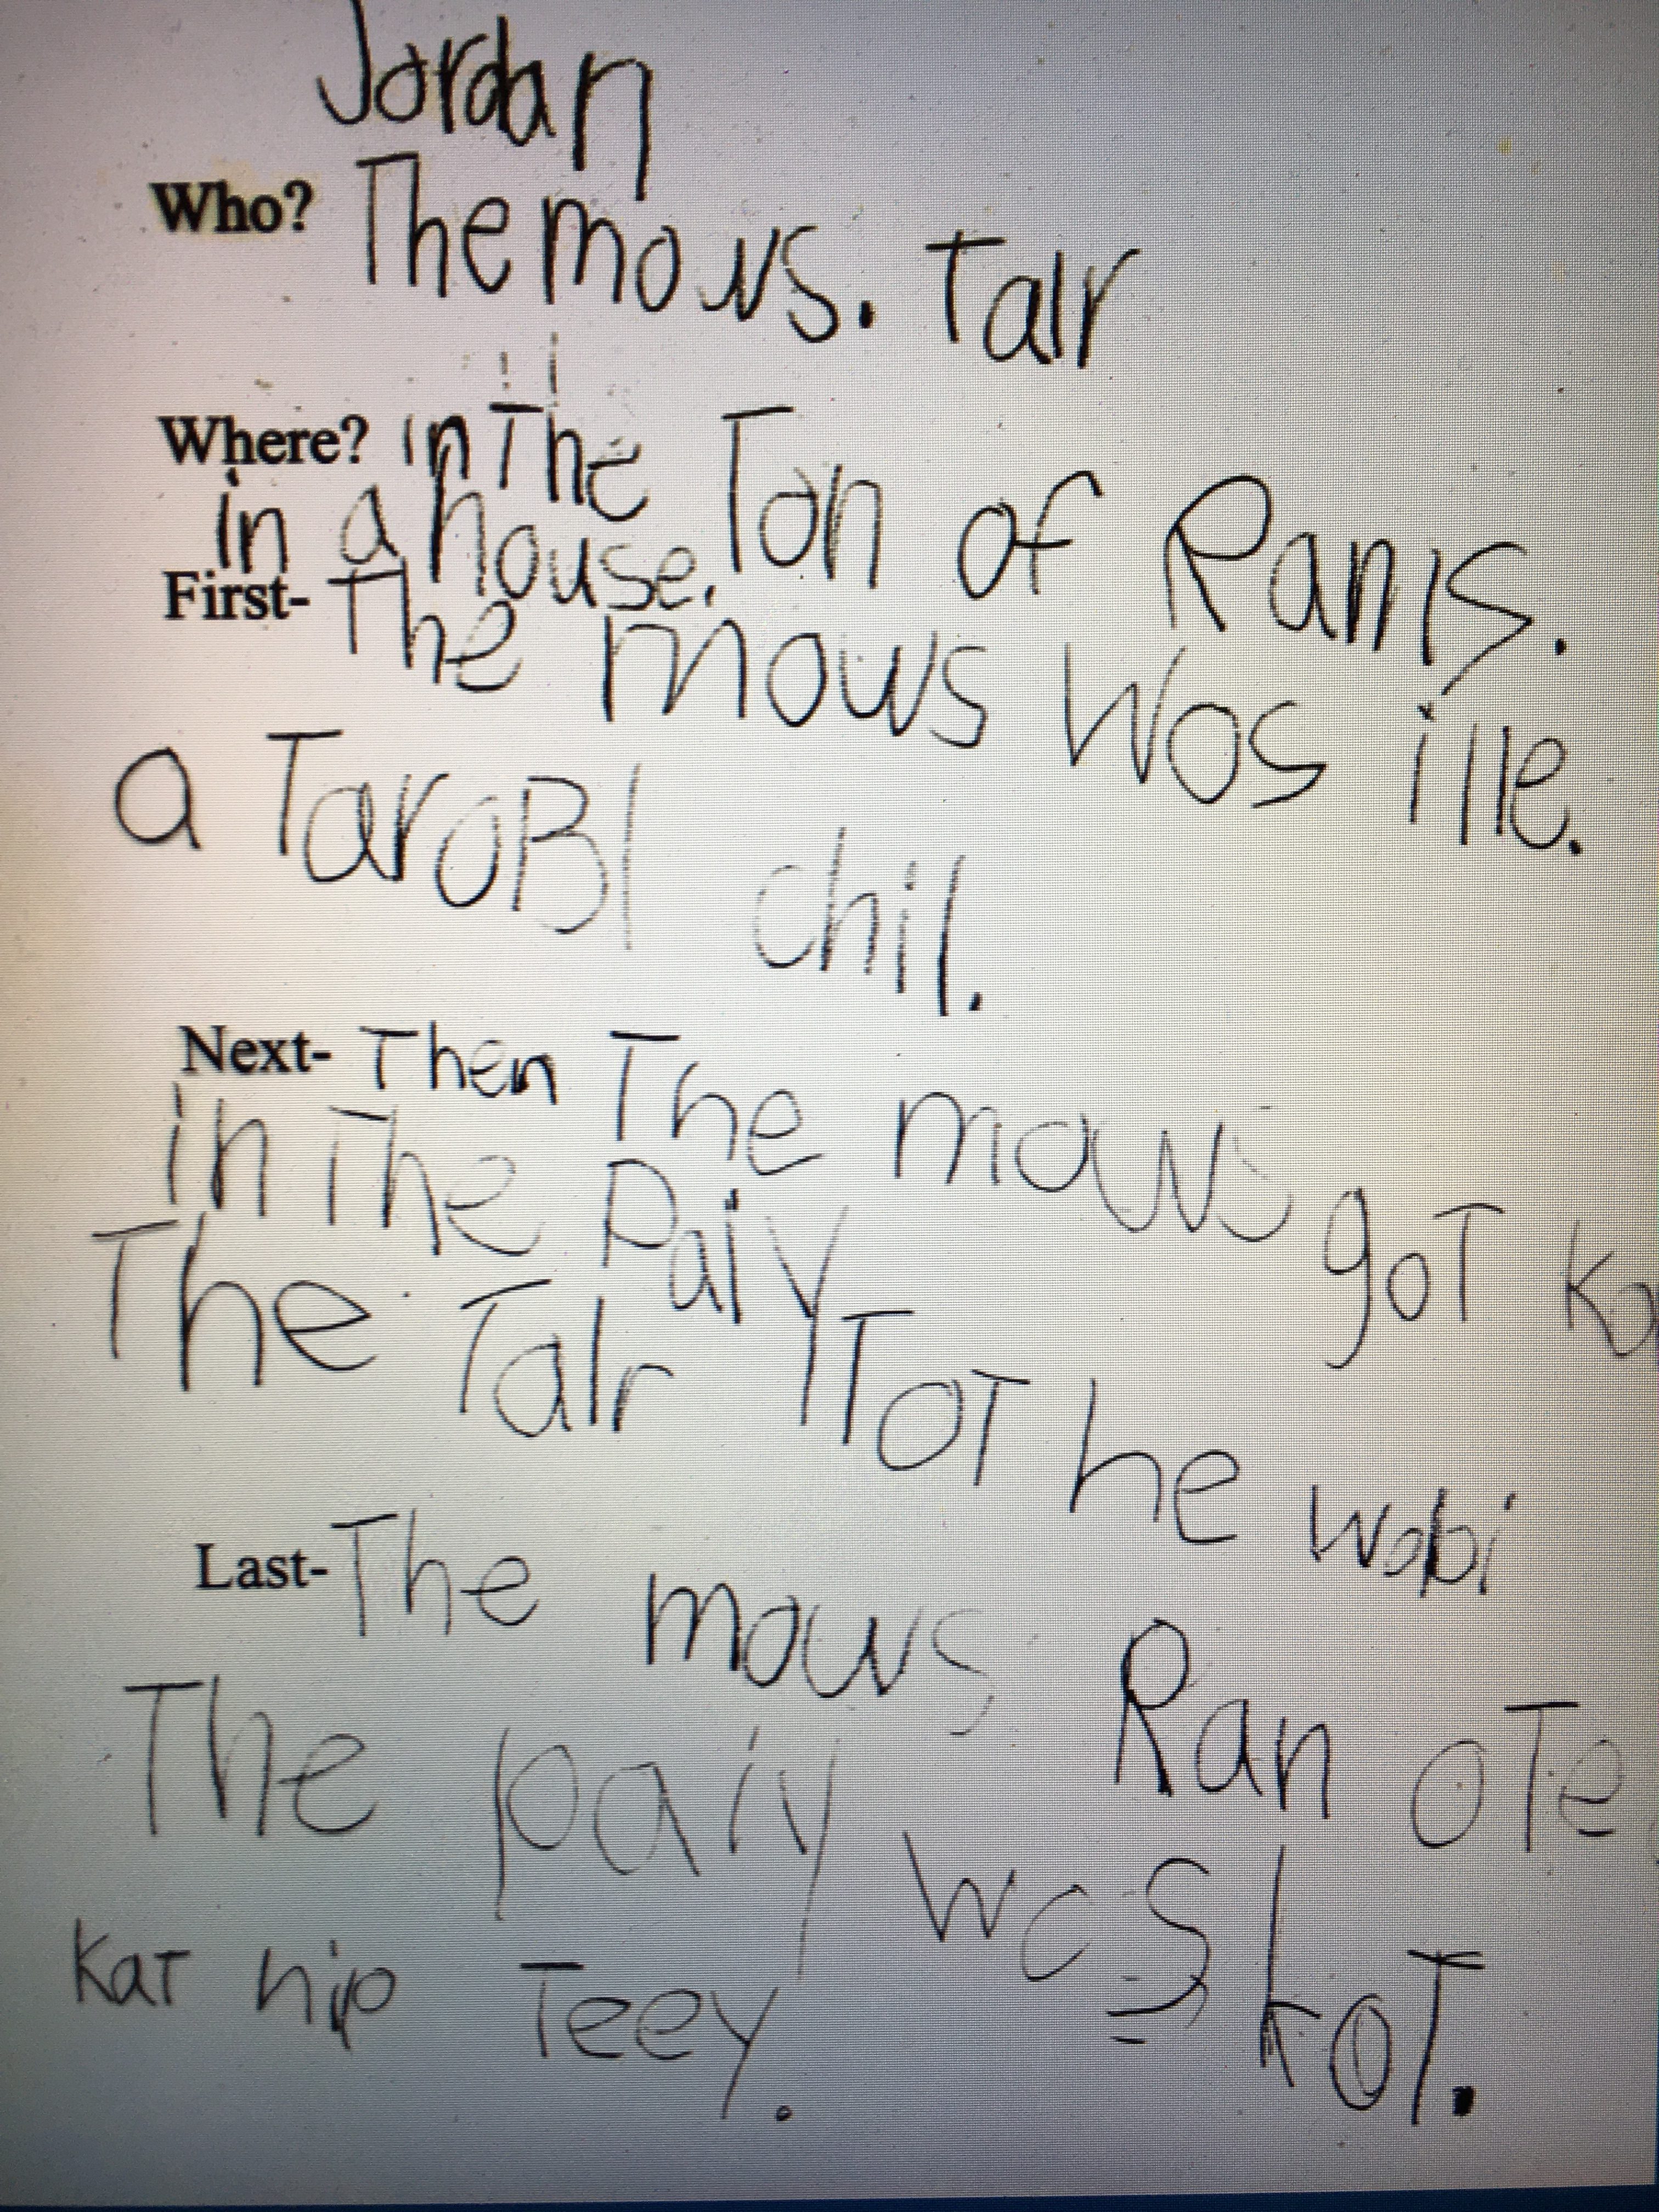 Jordan
Who? The mows. Talr
Where? in The Ton of Ranis.
in a house.
First- The mows wos ille.
a TaroBl chil.
Next- Then The mows goT
in The Paiy
The Talr ToT he wobi
Last- The mows Ran oTe
The paiy was koT.
KaT nip Teey.